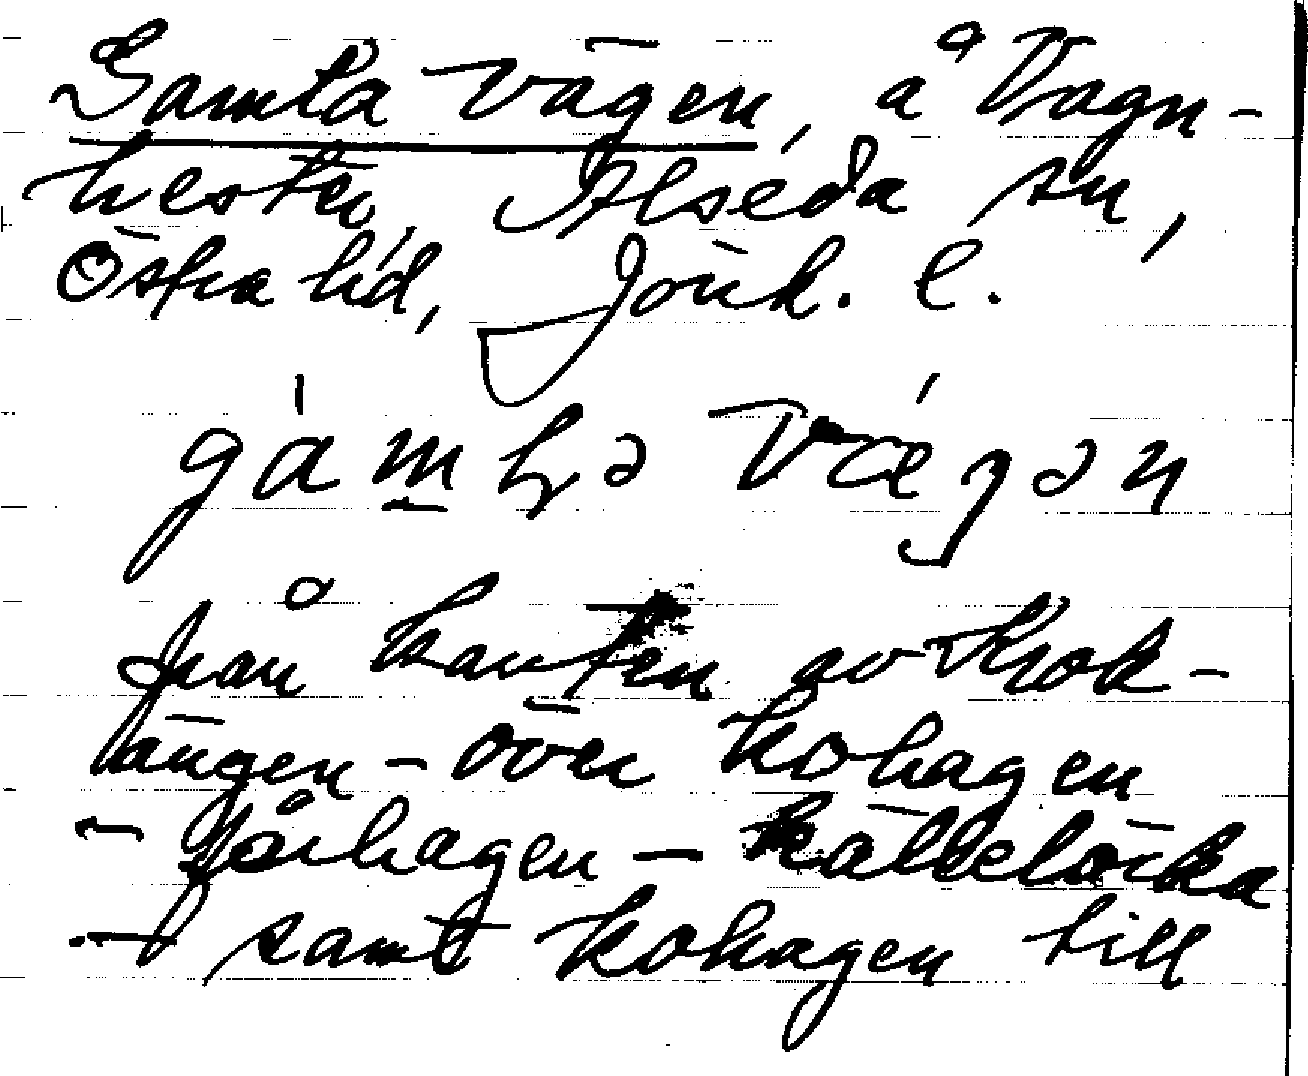 Gamla vägen, å Vagn-
hester, Alseda sn,
Östra hd, Jönk. l.
från kanten av Krok-
ängen - över kohagen
- Fårhagen - Källelöcka
- samt kohagen till